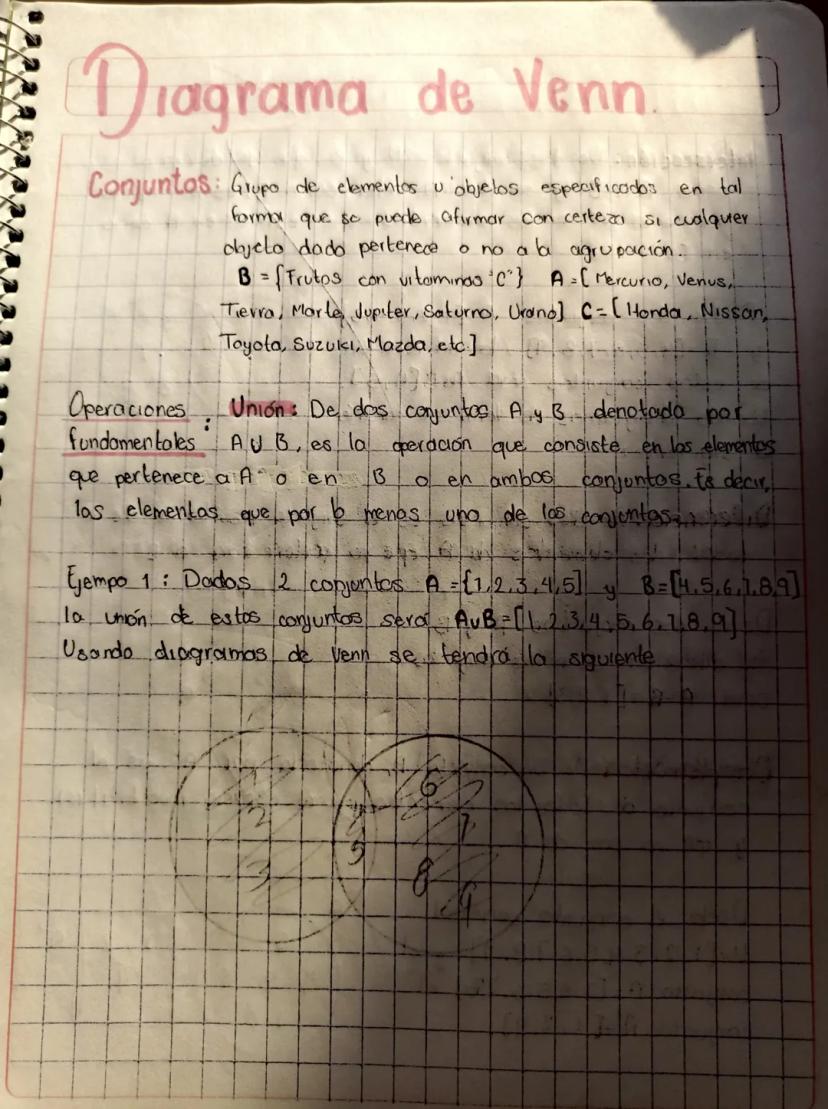 Diagrama de Venn.
Conjuntos: Grupo de elementos u objetos especificados en tal
forma que se puede afirmar con certeza si cualquier
objeto dado pertenece o no a la agrupación.
B = {Frutos con vitaminas "C"} A = [Mercurio, Venus,
Tierra, Marte, Jupiter, Saturno, Urano] C = [Honda, Nissan,
Toyota, Suzuki, Mazda, etc.]
Operaciones : Unión: De dos conjuntos A y B denotado por
fundamentales A U B, es la operación que consiste en los elementos
que pertenece a A o en B o en ambos conjuntos. Es decir,
los elementos que por lo menos uno de los conjuntos.
Ejempo 1: Dados 2 conjuntos A = {1,2,3,4,5] y B=[4,5,6,7,8,9]
la unión de estos conjuntos será AUB=[1,2,3,4,5,6,7,8,9]
Usando diagramas de Venn se tendrá lo siguiente
1 6
2 4 7
3 5 8
9